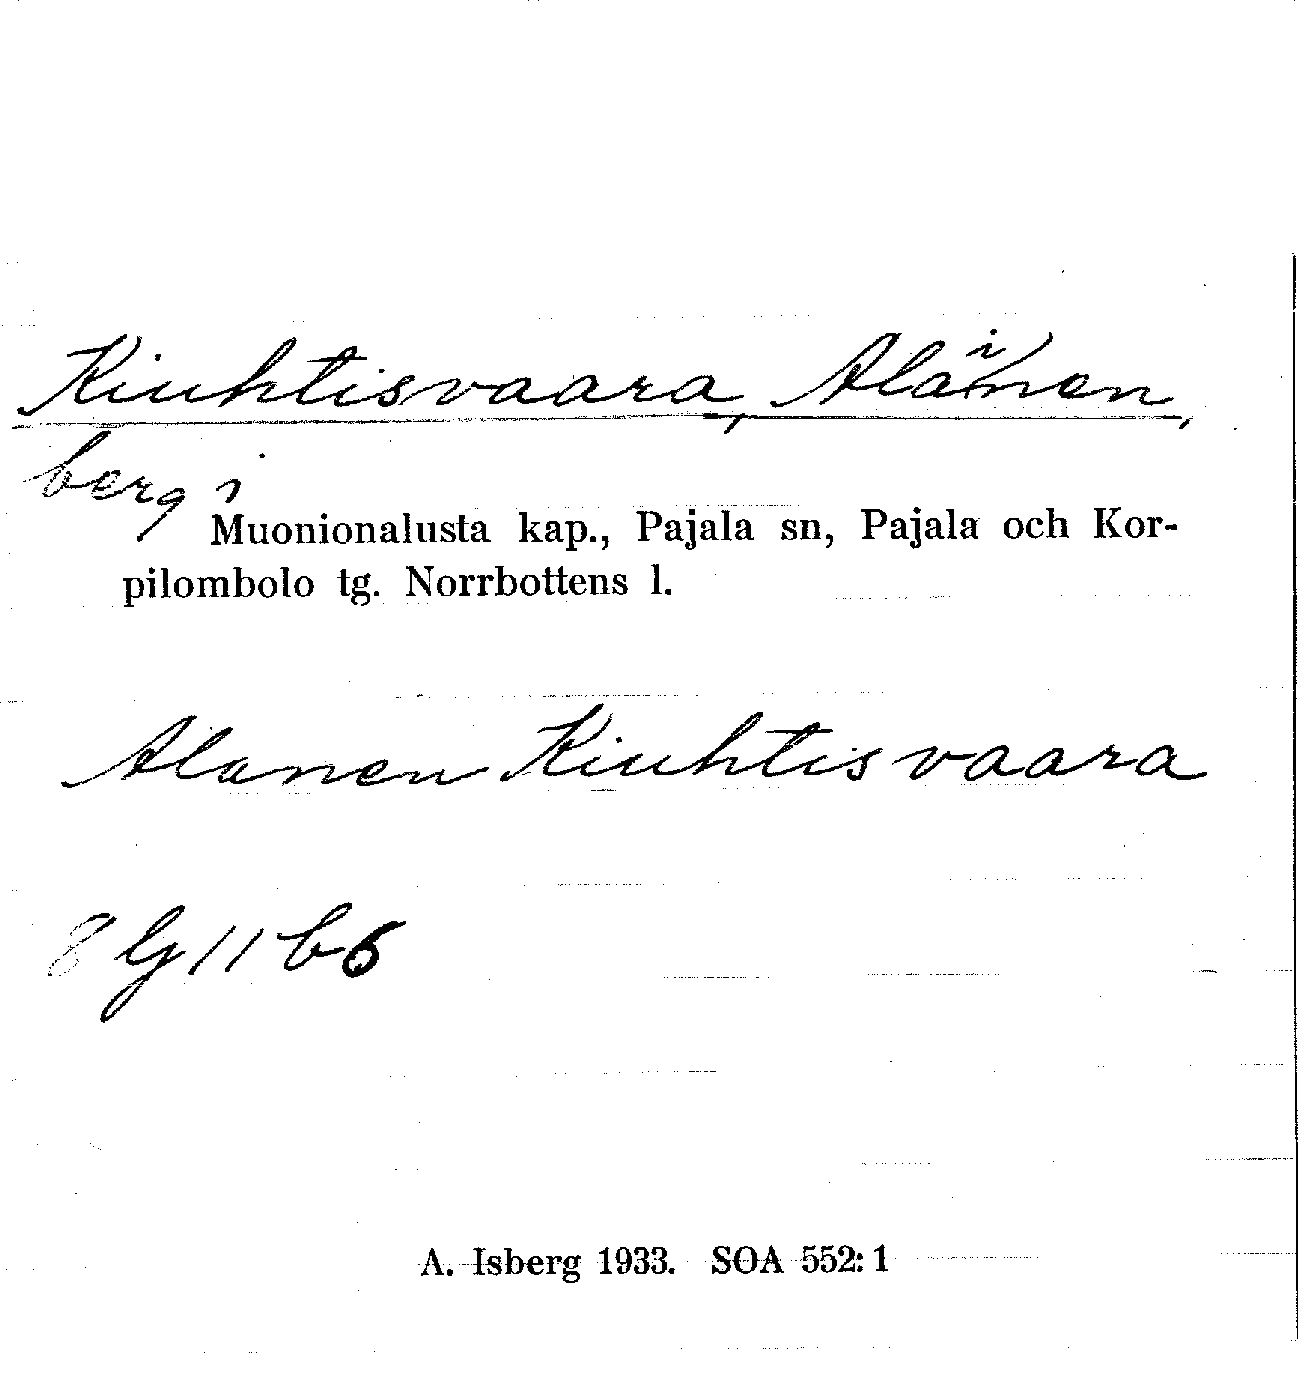 Kiuhtisvaara, Alainen,
berg i
Muonionalusta kap., Pajala sn, Pajala och Kor-
pilombolo tg. Norrbottens l.
Alanen Kiuhtisvaara
8 G 11 b 6
A. Isberg 1933. SOA 552:1